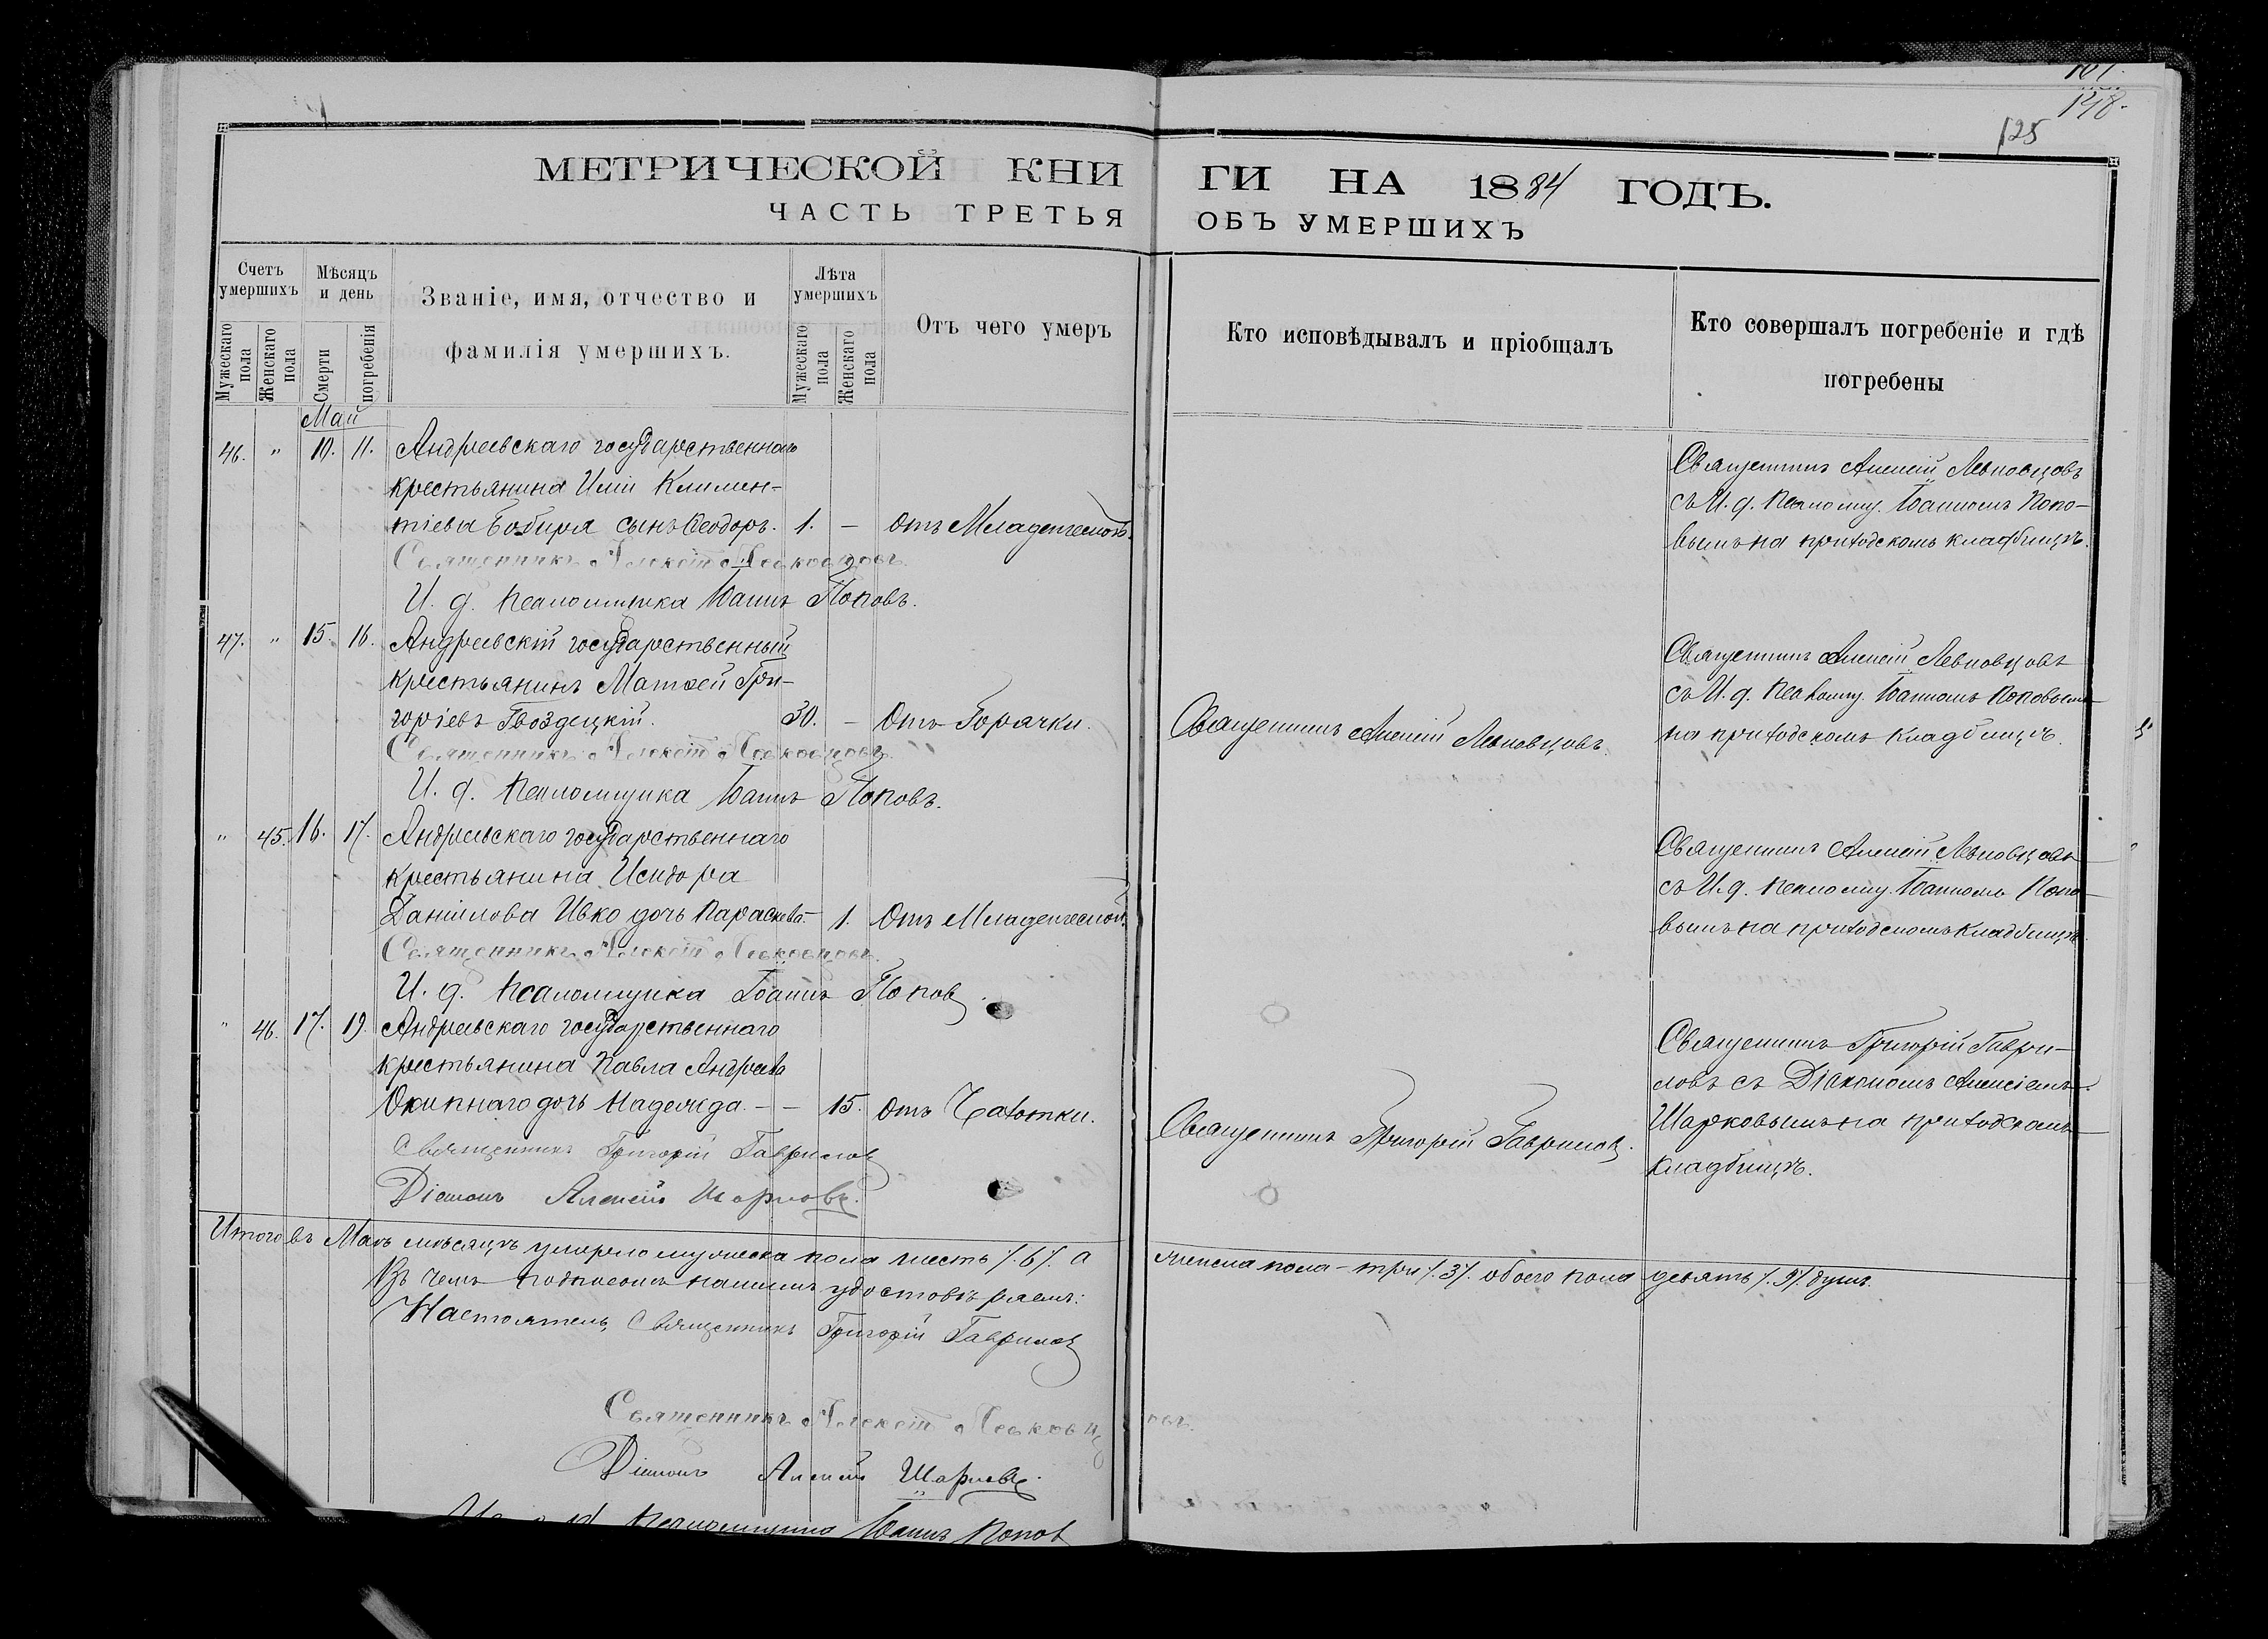 148.
125
МЕТРИЧЕСКОЙ КНИ
ГИ НА 1884 ГОДЪ.
ЧАСТЬ ТРЕТЬЯ
ОБЪ УМЕРШИХЪ
Счетъ умершихъ
Мѣсяцъ и день
Званіе, имя, отчество и
фамилія умершихъ.
Лѣта умершихъ
Отъ чего умеръ
Кто исповѣдывалъ и пріобщалъ
Кто совершалъ погребеніе и гдѣ
погребены
Мужескаго пола
Женскаго пола
Смерти
погребенія
Мужескаго пола
Женскаго пола
Май
46. " 10. 11. Андреевскаго государственнаго
крестьянина Иліи Климен-
тіева Бобиря сынъ Ѳеодоръ. 1. — Отъ Младенческой.
Священникъ Алексій Левковцовъ.
И. д. Псаломщика Іоаннъ Поповъ.
Священникъ Алексій Левковцовъ
съ И. д. Псаломщ. Іоанномъ Попо-
вымъ на приходскомъ кладбищѣ.
47. " 15. 16. Андреевскій государственный
крестьянинъ Матѳей Гри-
горіевъ Гвоздецкій. 30. — Отъ Горячки.
Священникъ Алексій Левковцовъ.
И. д. Псаломщика Іоаннъ Поповъ.
Священникъ Алексій Левковцовъ.
Священникъ Алексій Левковцовъ
съ И. д. Псаломщ. Іоанномъ Поповымъ
на приходскомъ кладбищѣ.
" 45. 16. 17. Андреевскаго государственнаго
крестьянина Исидора
Даніилова Ивко дочь Параскева. — 1. Отъ Младенческой.
Священникъ Алексій Левковцовъ.
И. д. Псаломщика Іоаннъ Поповъ.
Священникъ Алексій Левковцовъ
съ И. д. Псаломщ. Іоанномъ Попо-
вымъ на приходскомъ кладбищѣ.
" 46. 17. 19. Андреевскаго государственнаго
крестьянина Павла Андреева
Окипнаго дочь Надежда. — — 15. Отъ Чахотки.
Священникъ Григорій Гавриловъ
Діаконъ Алексій Шарковъ.
Священникъ Григорій Гавриловъ.
Священникъ Григорій Гаври-
ловъ съ Діакономъ Алексіемъ
Шарковымъ на приходскомъ
кладбищѣ.
Итого въ Маѣ мѣсяцѣ умерло мужеска пола шесть /.6/. а
женска пола — три /.3/. обоего пола девять /.9/. душъ.
Въ чемъ подписомъ нашимъ удостовѣряемъ:
Настоятель, Священникъ Григорій Гавриловъ
Священникъ Алексій Левковцовъ.
Діаконъ Алексій Шарковъ.
Псаломщика Іоаннъ Поповъ